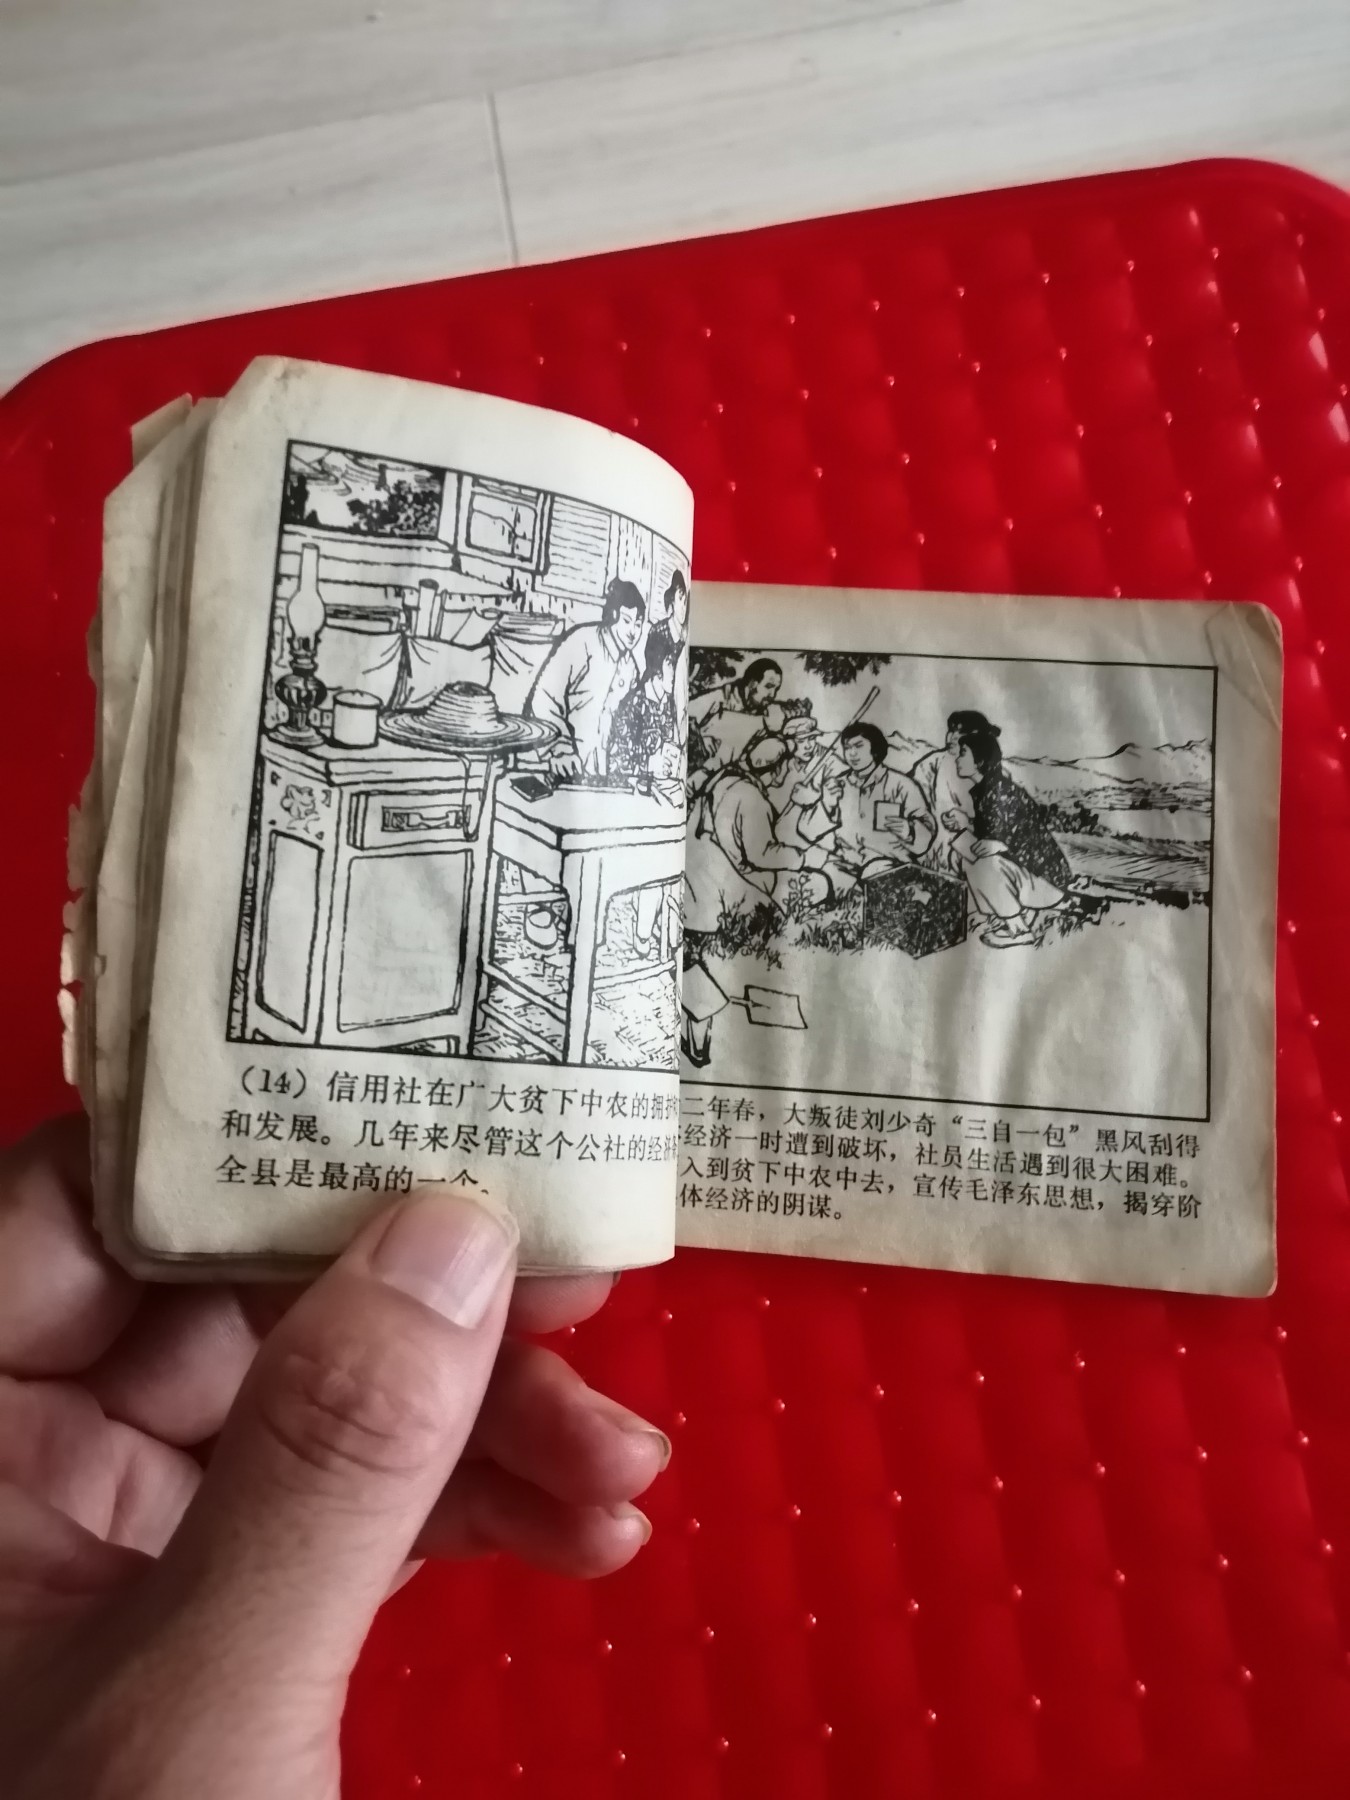 (14) 信用社在广大贫下中农的拥护
和发展。几年来尽管这个公社的经济
全县是最高的一个。
二年春，大叛徒刘少奇“三自一包”黑风刮得
经济一时遭到破坏，社员生活遇到很大困难。
入到贫下中农中去，宣传毛泽东思想，揭穿阶
体经济的阴谋。